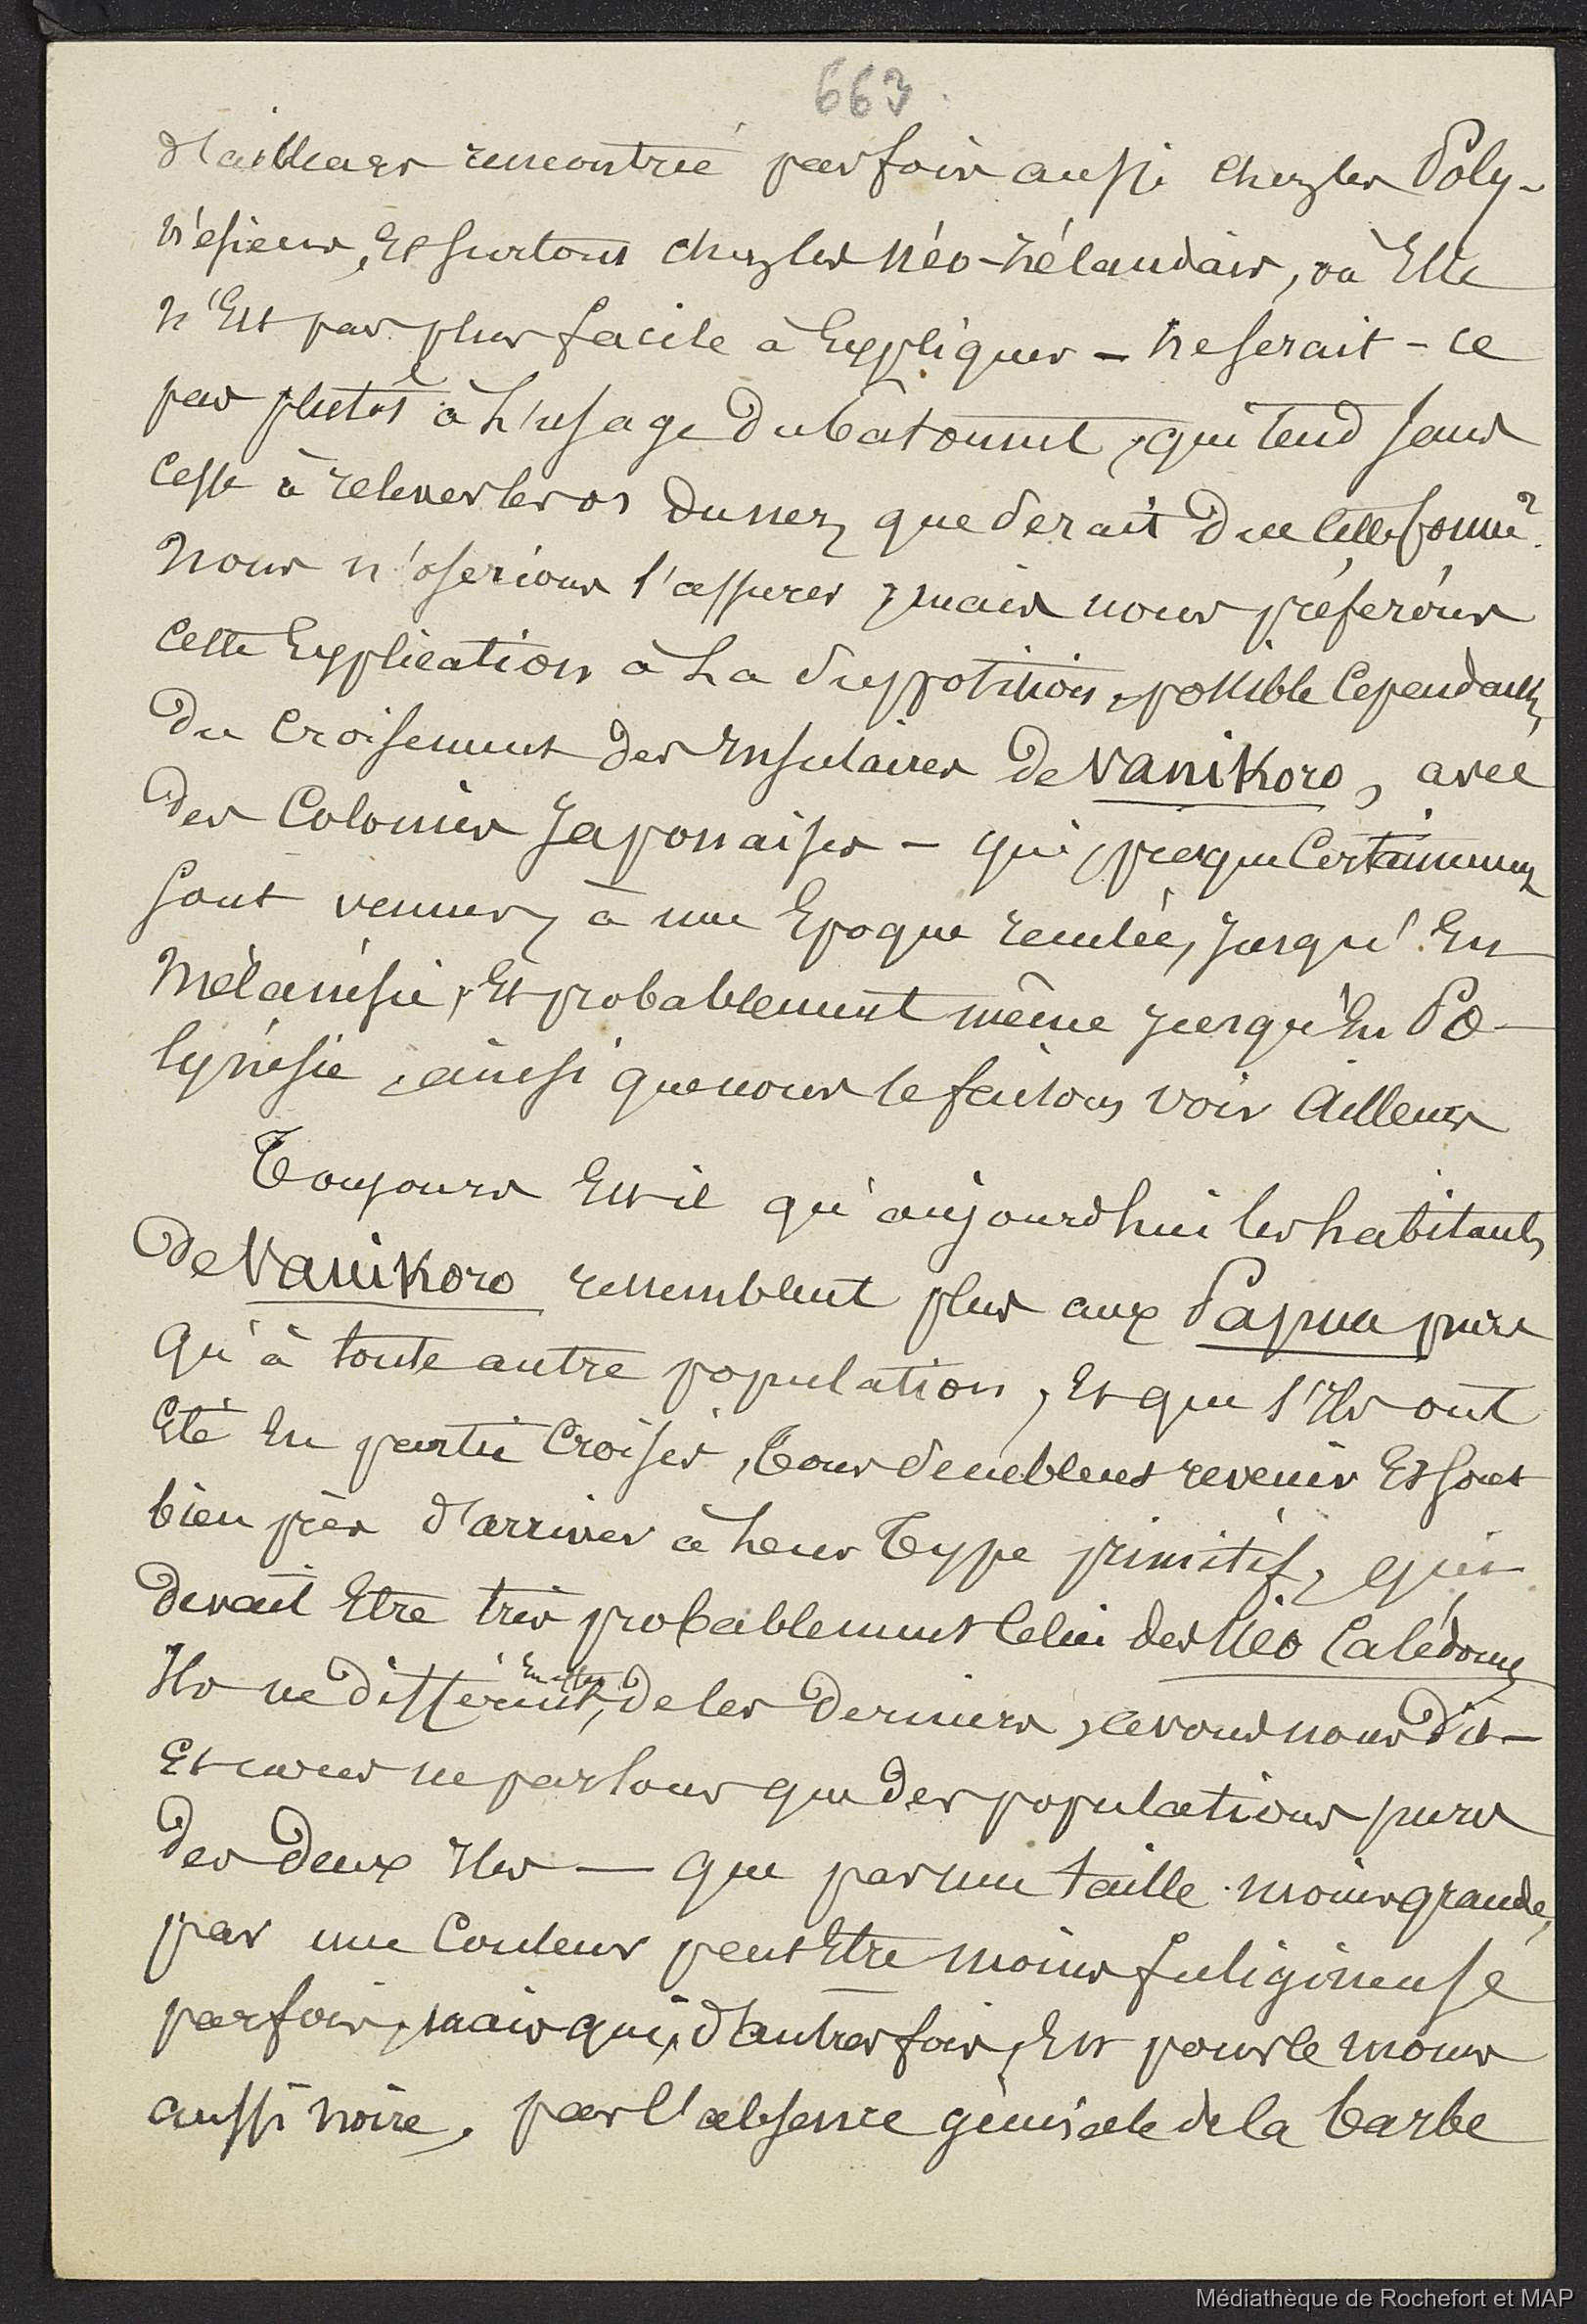 663
d'ailleurs rencontrée parfois aussi chez les Poly-
nésiens, Et surtout chez les Néo-Zélandais, où Elle
n'Est pas plus facile à Expliquer - Ne serait-ce
pas plutôt à L'usage du bâtonnet, qui tend sans
cesse à relever les os du nez, que serait due cette forme?
Nous n'oserions l'assurer, mais nous préférons
cette Explication à La Supposition, possible cependant,
Du croisement des Insulaires de Vanikoro, avec
des Colonies Japonaises - qui, presque Certainement
sont venues, à une Epoque reculée, jusqu'En
Mélanésie, Et probablement même jusqu'En Po-
lynésie, ainsi que nous le faisons voir Ailleurs
Toujours Est-il qu'aujourdhui les habitants
De Vanikoro ressemblent plus aux Papua purs
Qu'à toute autre population, Et que s'Ils ont
Eté En partie Croisés, Tous semblent revenir Et sont
bien près d'arriver à Leur Type primitif, qui
devait Etre très probablement Celui des Néo Calédoniens
Ils ne diffèrent, En effet, de ces Derniers, avons nous dit -
Et nous ne parlons que des populations pures
des Deux Iles — que par une taille moins grande,
par une Couleur peut Etre moins fuligineuse
parfois, mais qui, d'autres fois, Est pour le moins
aussi noire, par l'absence générale de la barbe
Médiathèque de Rochefort et MAP